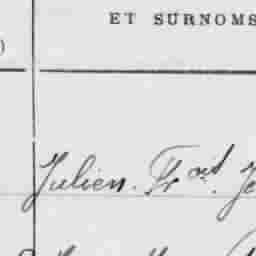 ET SURNOMS
)
Julien. Fr